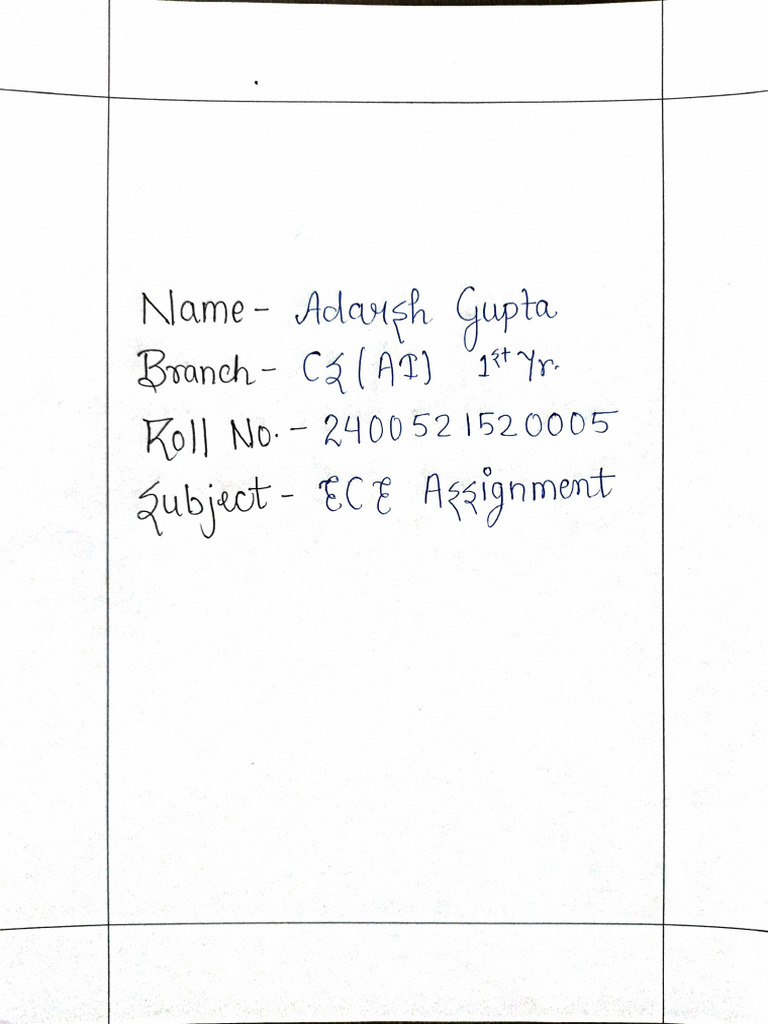 Name - Adarsh Gupta
Branch - CS (AI) 1st Yr.
Roll No. - 2400521520005
Subject - ECE Assignment